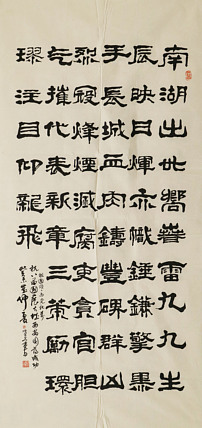 南湖出世響春雷九九生
辰映日輝赤幟錘鐮擎禹
手長城血肉鑄豐碑群凶
寇烽煙滅腐吏貪官膽
气摧代表新章三策勵環
璆注目仰龍飛